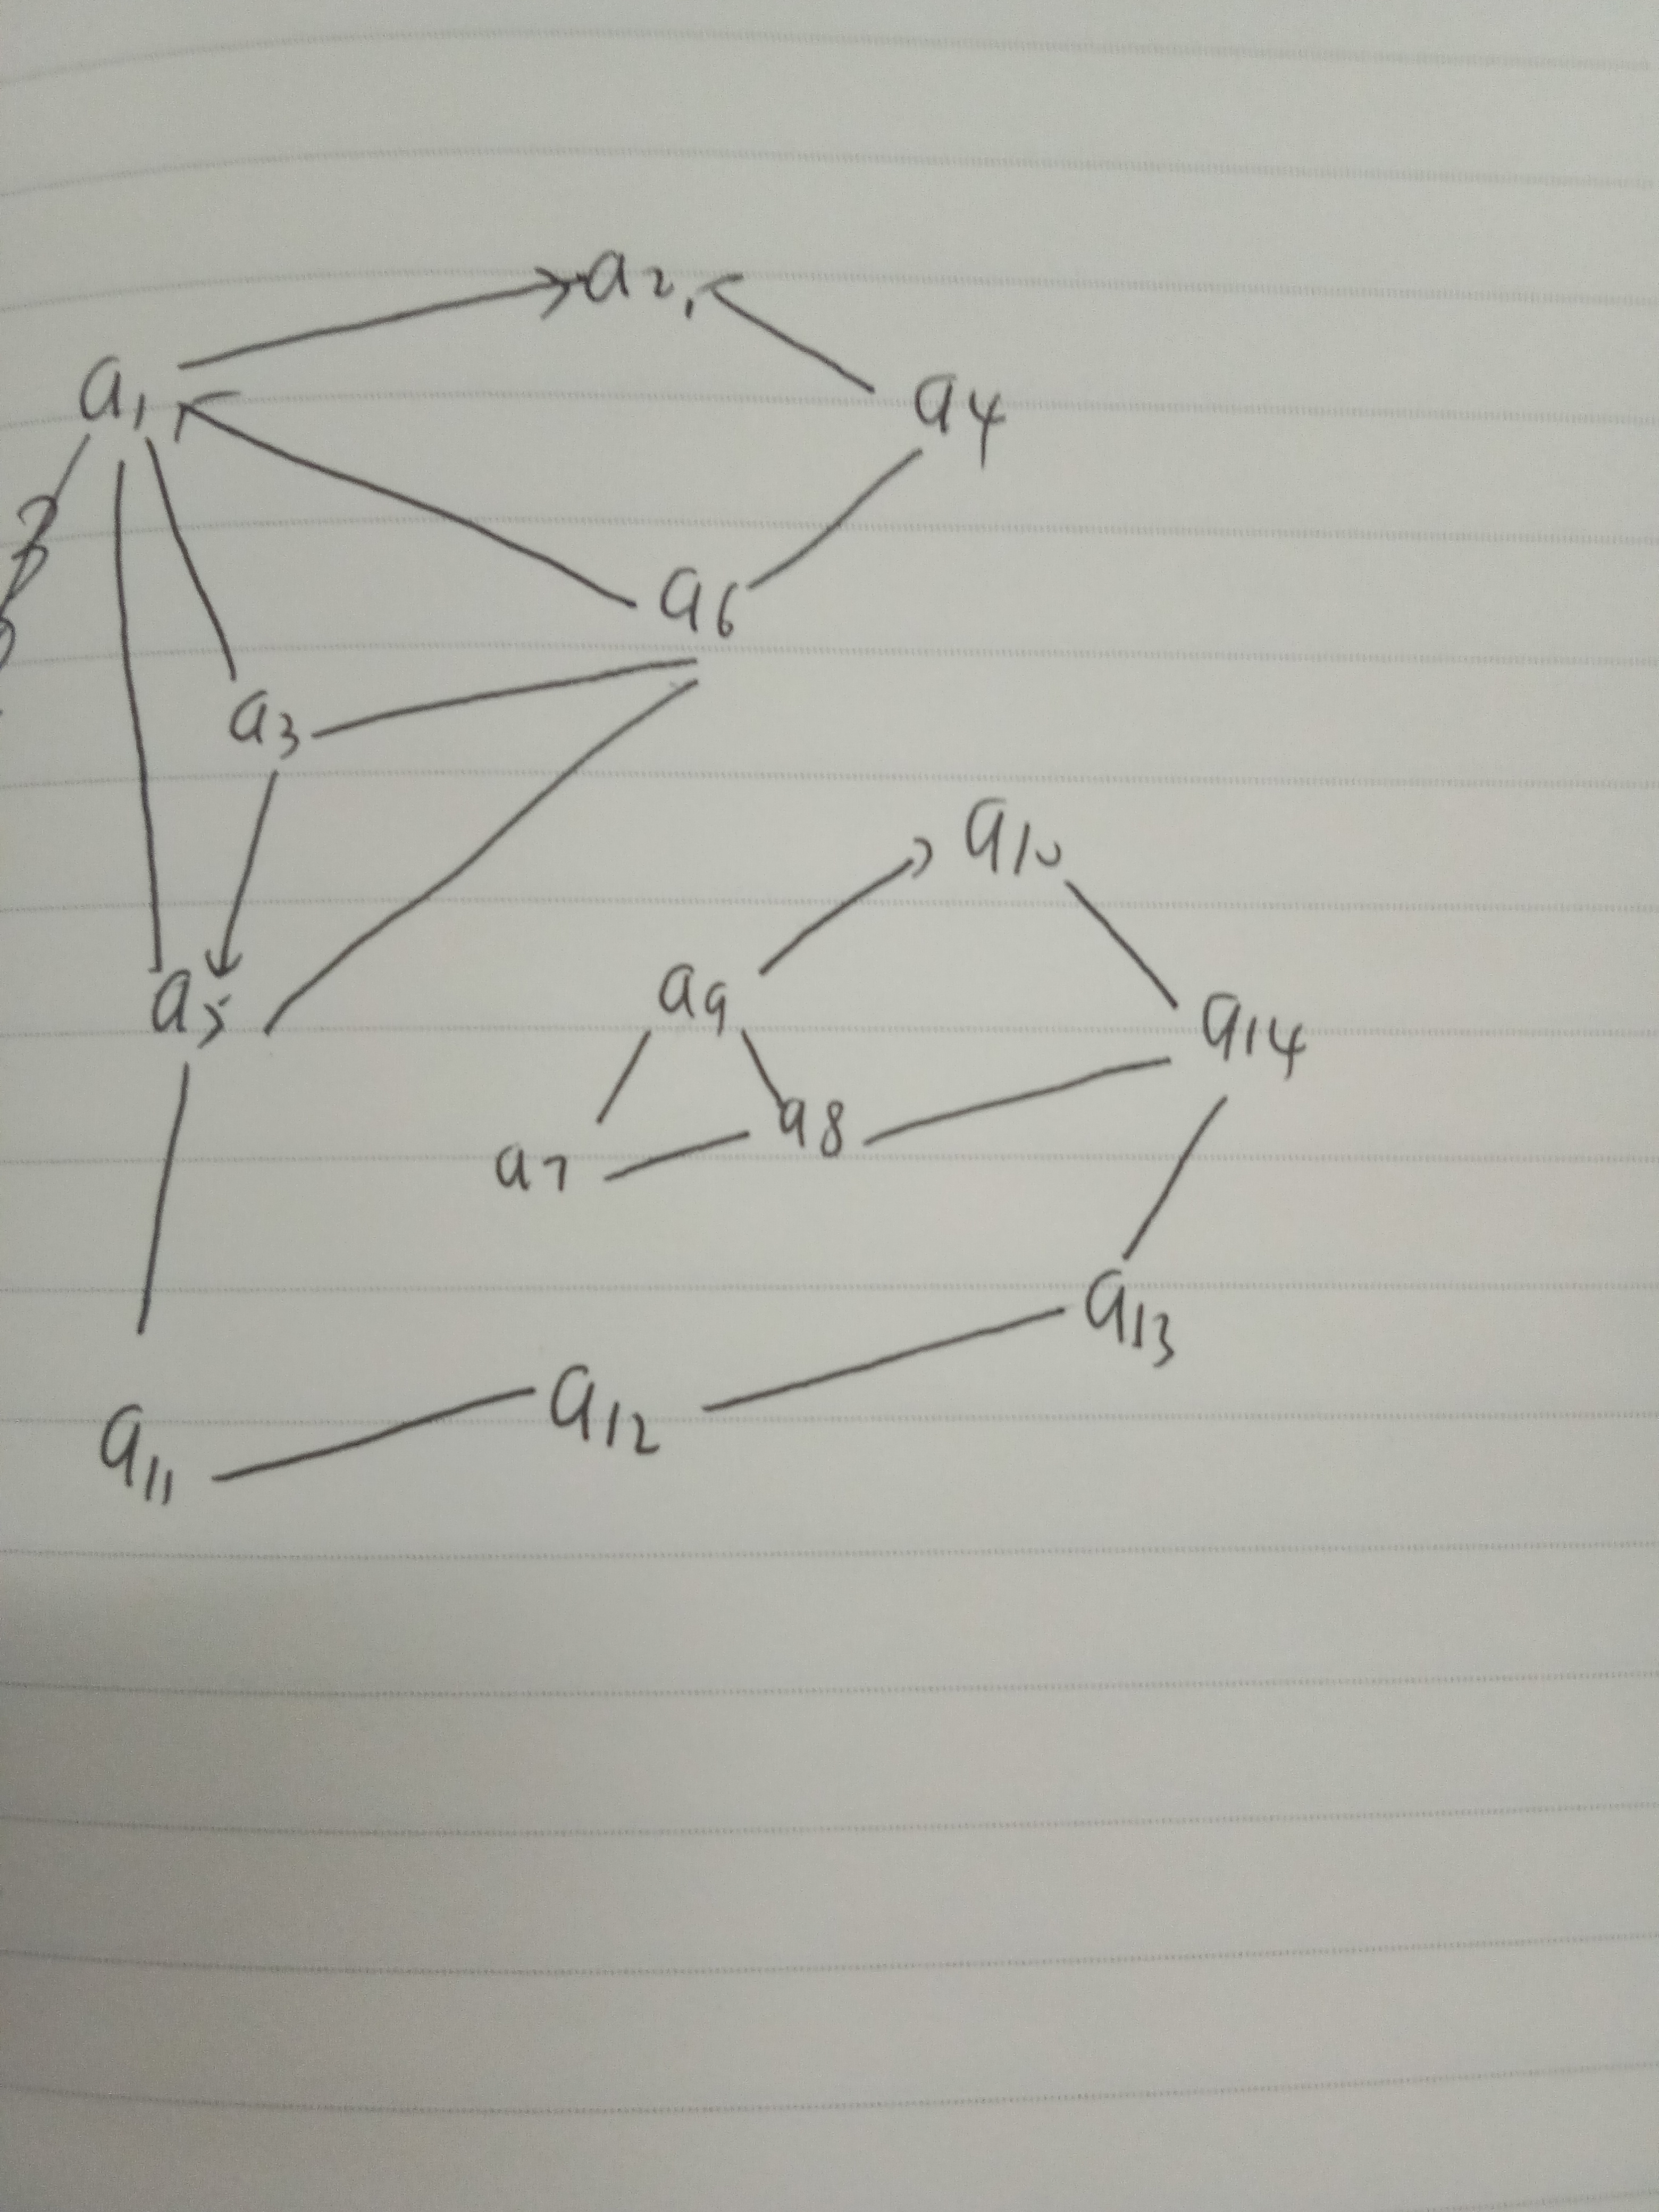 a2
a1
a4
a6
a3
a10
a5
a9
a14
a8
a7
a13
a12
a11